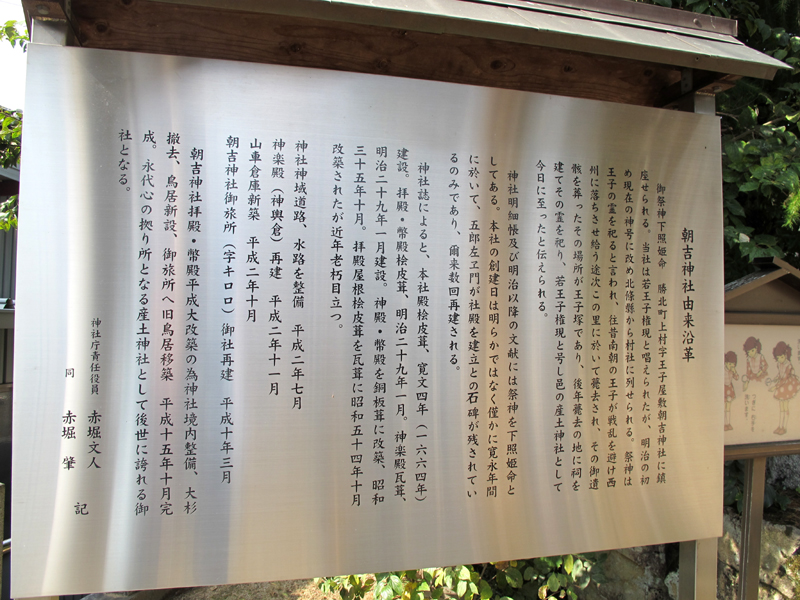 朝吉神社由来沿革
御祭神下照姫命　勝北町上村字王子屋敷朝吉神社に鎮
座せられる。当社は若王子権現と唱えられたが、明治の初
め現在の神号に改め北條縣から村社に列せられる。祭神は
王子の霊を祀ると言われ、往昔南朝の王子が戦乱を避け西
州に落ちさせ給う途次この里に於いて薨去され、その御遺
骸を葬ったその場所が王子塚であり、後年薨去の地に祠を
建てその霊を祀り、若王子権現と号し邑の産土神社として
今日に至ったと伝えられる。
神社明細帳及び明治以降の文献には祭神を下照姫命と
してある。本社の創建日は明らかではなく僅かに寛永年間
に於いて、五郎左ヱ門が社殿を建立との石碑が残されてい
るのみであり、爾来数回再建される。
神社誌によると、本社殿桧皮葺、寛文四年（一六六四年）
建設。拝殿・幣殿桧皮葺、明治二十九年一月。神楽殿瓦葺、
明治二十九年一月建設。神殿・幣殿を銅板葺に改築、昭和
三十五年十月。拝殿屋根桧皮葺を瓦葺に昭和五十四年十月
改築されたが近年老朽目立つ。
神社神域道路、水路を整備　平成二年七月
神楽殿（神輿倉）再建　平成二年十一月
山車倉庫新築　平成二年十月
朝吉神社御旅所（字キロロ）御社再建　平成十年三月
朝吉神社拝殿・幣殿平成大改築の為神社境内整備、大杉
撤去、鳥居新設、御旅所へ旧鳥居移築　平成十五年十月完
成。永代心の拠り所となる産土神社として後世に誇れる御
社となる。
神社庁責任役員　赤堀文人
同　赤堀　肇　記